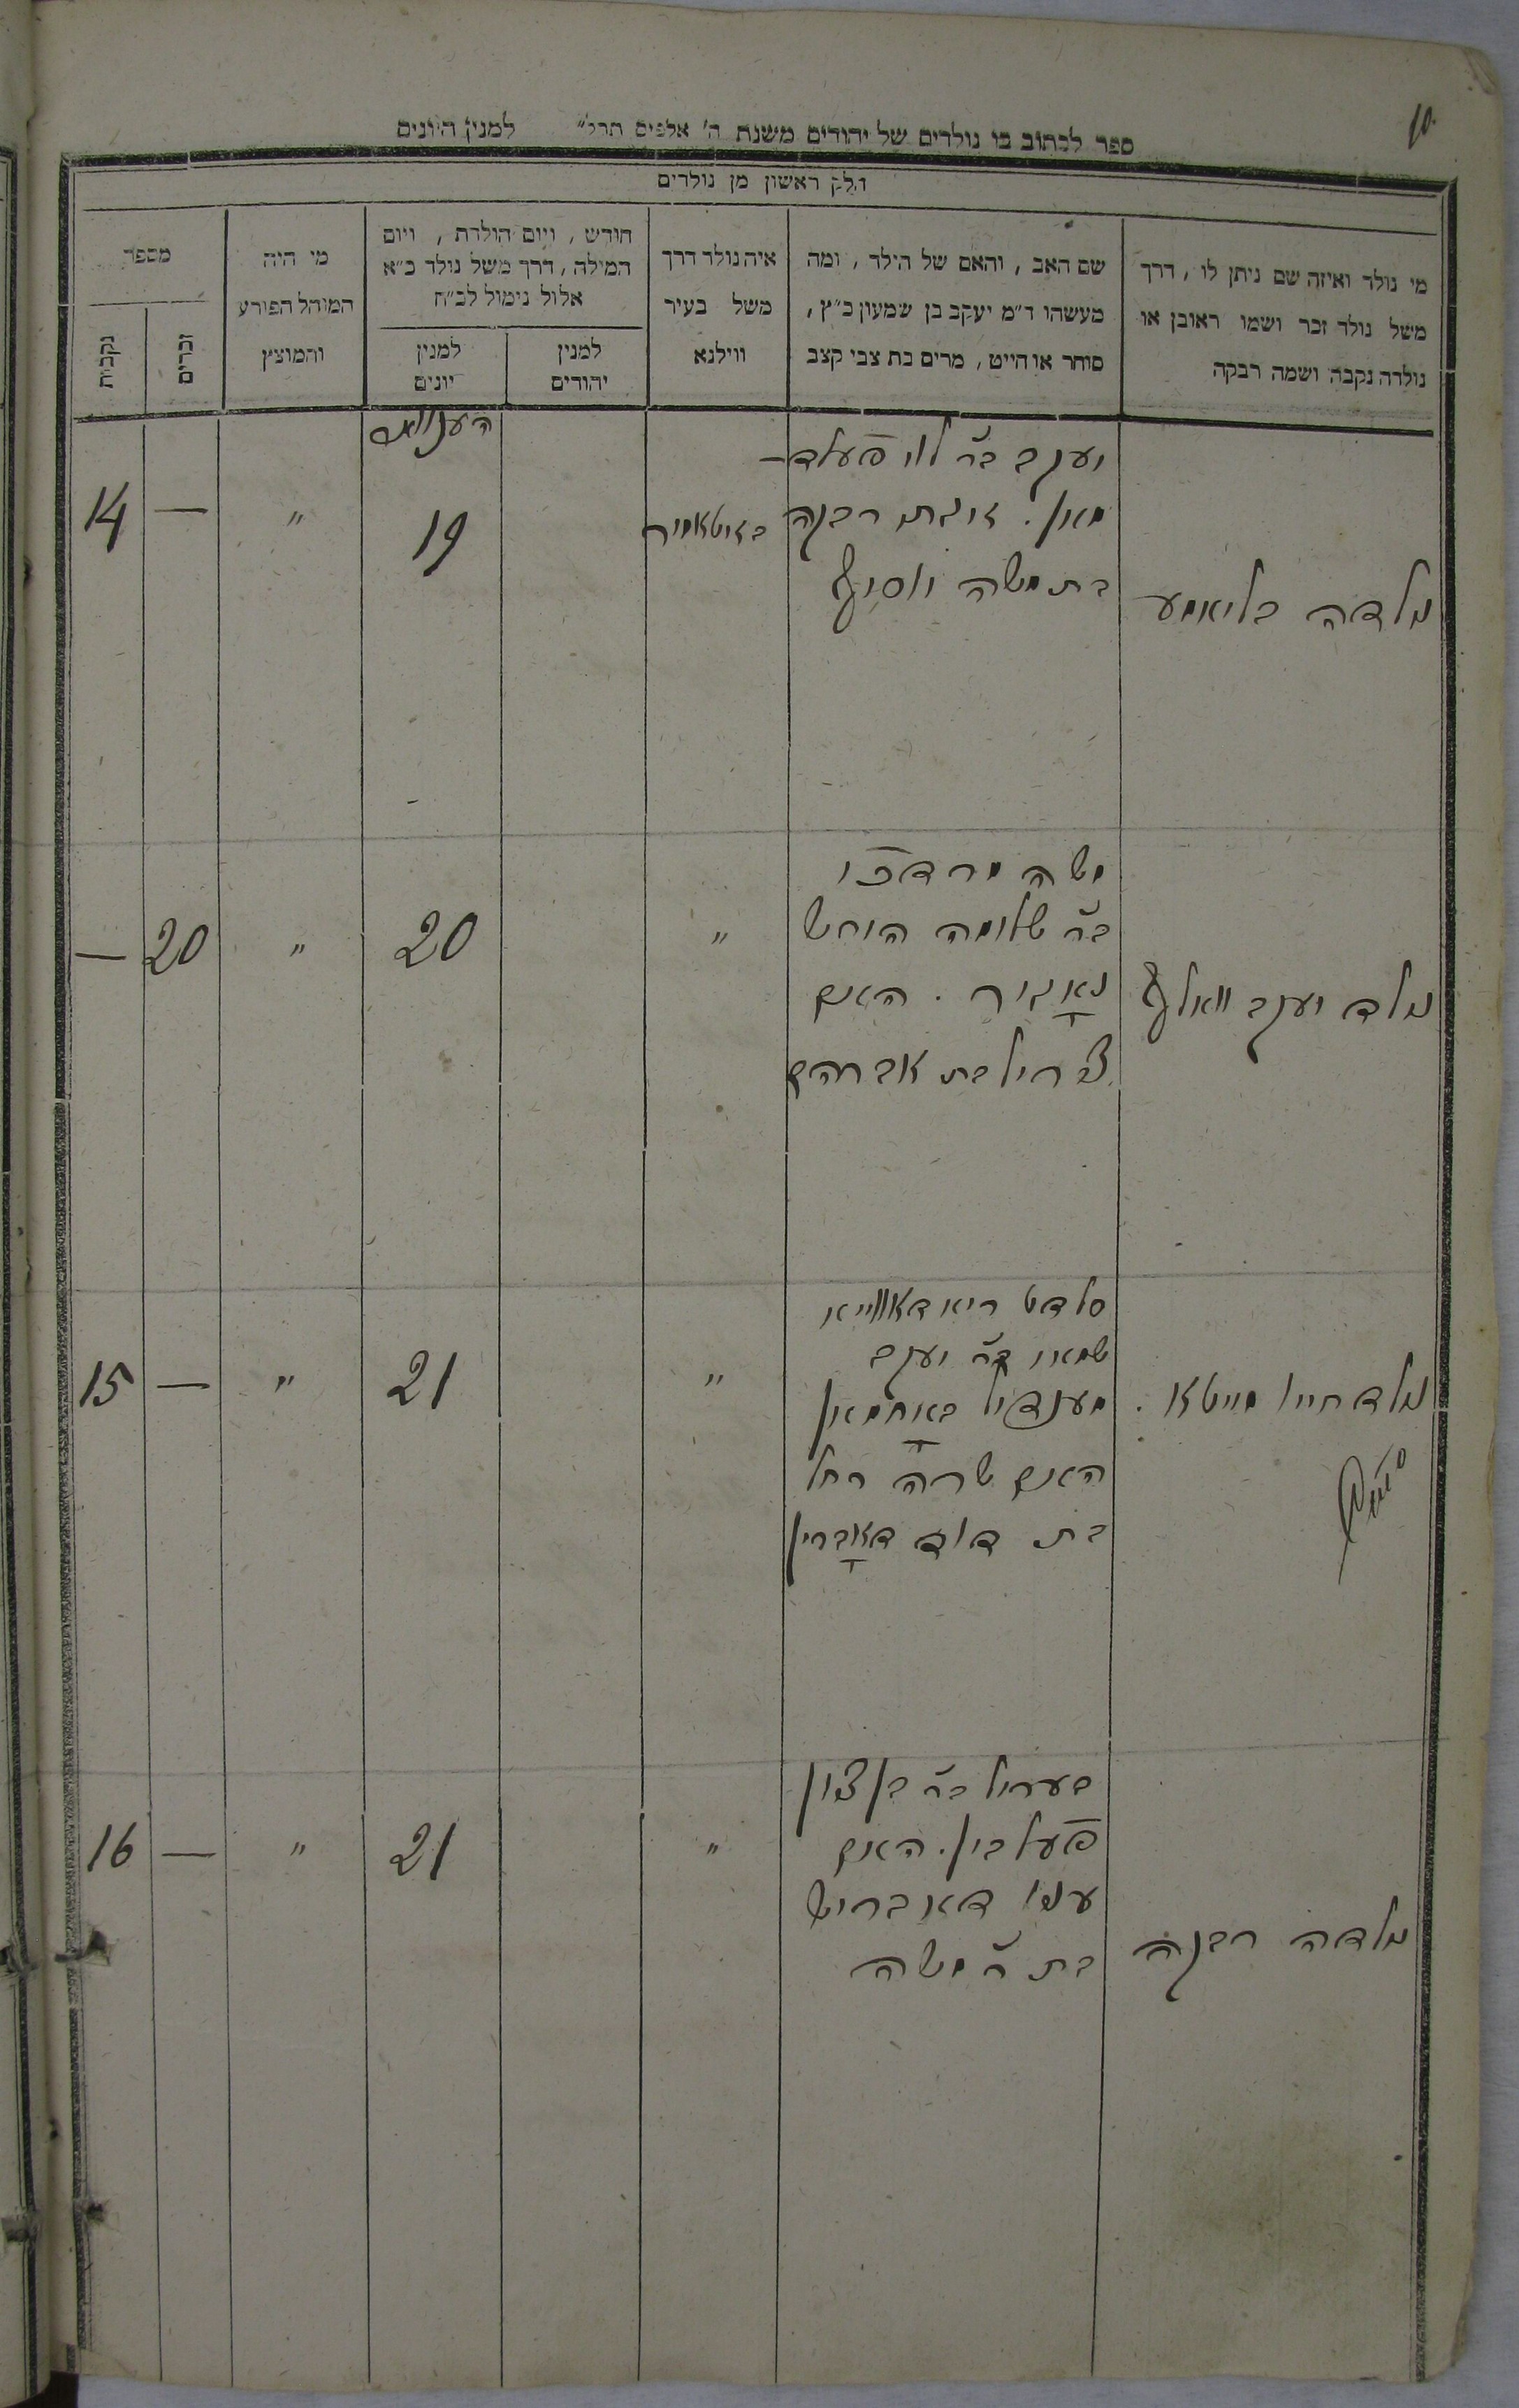 10.
ספר לכתוב בו נולדים של יהודים משנת ה' אלפים תרל" למנין היונים
חלק ראשון מן נולדים
מי נולד ואיזה שם ניתן לו, דרך
משל נולד זכר ושמו ראובן או
נולדה נקבה ושמה רבקה
שם האב, והאם של הילד, ומה
מעשהו ד"מ יעקב בן שמעון כ"ץ,
סוחר או הייט, מרים בת צבי קצב
איה נולד דרך
משל בעיר
ווילנא
חודש, ויום הולדת, ויום
המילה, דרך משל נולד כ"א
אלול נימול לכ"ח
למנין
יהודים
למנין
יונים
מי היה
המוהל הפורע
והמוצץ
מספר
זכרים
נקבות
נולדה בליומע
יעקב בר לוי פעלד-
מאן. זוגתו רבקה
בת משה יוסיף
בזיטאמיר
19
"
—
14
נולד יעקב וואלף
משה מרדכי
בר שלומה הירש
האם
צריל בת אברהם
"
20
"
20
—
נולד חיים
סלדט
בר יעקב
מענדיל באחמאן
האם שרה רחל
בת דוד
"
21
"
—
15
נולדה רבקה
בעריל בר בן ציון
האם
בת ר משה
"
21
"
—
16